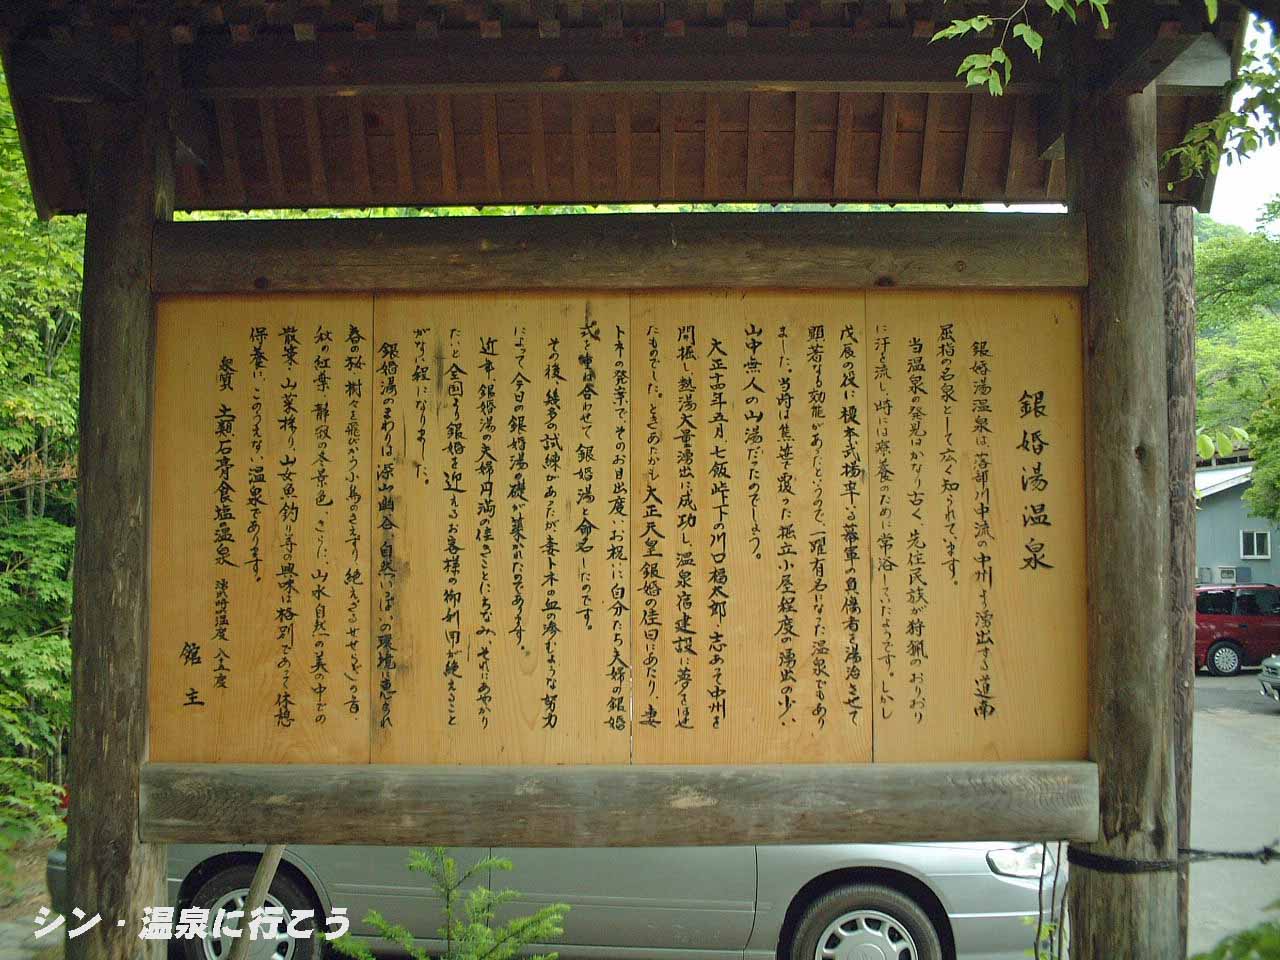 銀婚湯温泉
銀婚湯温泉は、落部川中流の中州より湧出する道南
屈指の名泉として広く知られています。
当温泉の発見はかなり古く、先住民族が狩猟のおりおり
に汗を流し、時には療養のために常浴していたようです。しかし
戊辰の役に榎本武揚率いる幕軍の負傷者を湯治させて
顕著なる効能があったというので、一躍有名になった温泉でもあり
ました。当時は熊笹で覆った掘立小屋程度の湧出の少い
山中無人の山湯だったのでしょう。
大正十四年五月、七飯峠下の川口福太郎・志あって中州を
間掘し、熱湯大量湧出に成功し、温泉宿建設に夢をはせ
たものでした。ときあたかも大正天皇銀婚の佳日にあたり、妻
トネの発案で、そのお目出度いお祝いに自分たち夫婦の銀婚
式を 合わせて銀婚湯と命名したのです。
その後、幾多の試練があったが、妻トネの血の滲むような努力
によって今日の銀婚湯の礎が築かれたのであります。
近年、銀婚湯の夫婦円満の佳きことにちなみ、それにあやかり
たいと全国より銀婚を迎えるお客様の御利用が絶えること
がない程になりました。
銀婚湯のまわりは深山幽谷、自然いっぱいの環境に恵まれ
春の桜、樹々を飛びかう小鳥のさえずり、絶えざるせせらぎの音、
秋の紅葉、静寂の冬景色、さらに、山水自然の美の中での
散策・山菜採り、山女魚釣り等の興味は格別であって休憩
保養に、このうえない温泉であります。
泉質 土類石膏食塩の温泉 湧出時温度 八五度
館主
シン・温泉に行こう